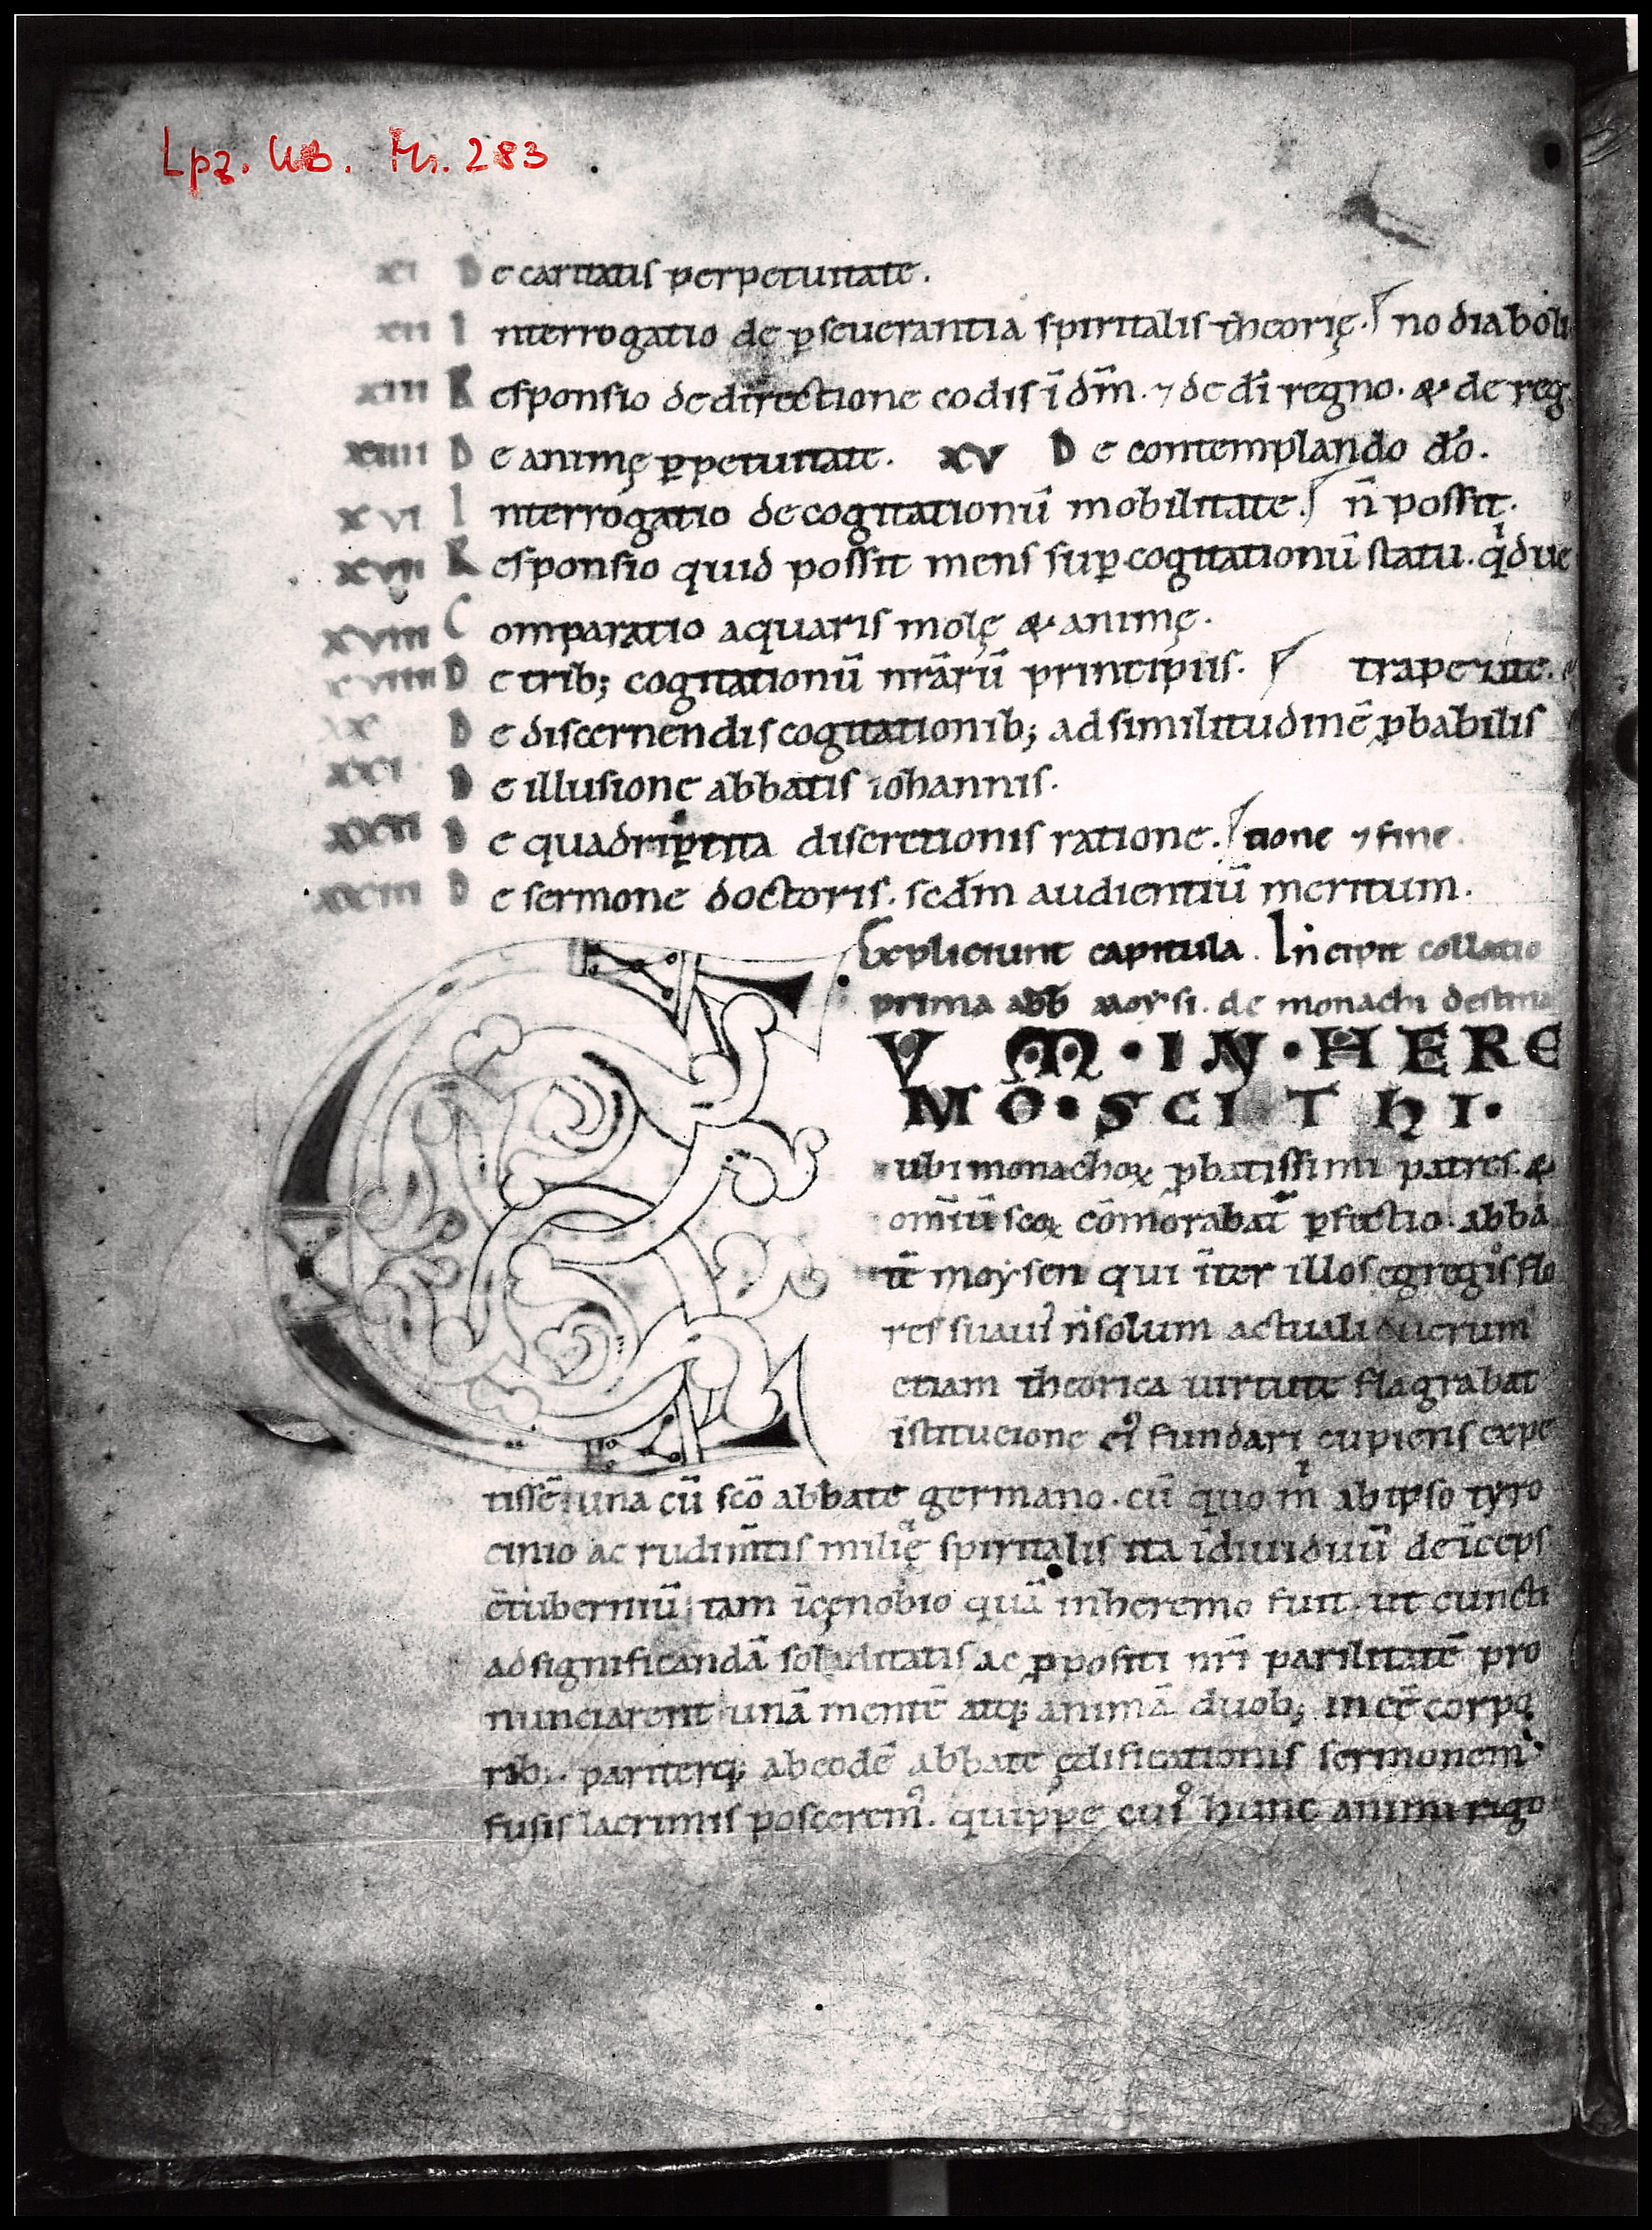 Lpz. UB. Ms. 283
xi De caritatis perpetuitate.
xii Interrogatio de ꝑseuerantia spiritalis theorię. no diaboli
xiii Responsio de directione codis ī dm̄. ⁊ de dī regno. & de reg
xiiii De animę ꝑpetuitate. xv De contemplando do.
xvi Interrogatio de cogitationū mobilitate. n̄ possit.
xvii Responsio quid possit mens suꝑ cogitationū statu. qd ue
xviii Comparatio aquaris molę & animę.
xviiii De trib; cogitationū nr̄arū principiis. trapezite.
xx De discernendis cogitationib; ad similitudinē ꝓbabilis
xxi De illusione abbatis iohannis.
xxii De quadriꝑtita discretionis ratione. tione ⁊ fine.
xxiii De sermone doctoris. scdm audientiū meritum.
Expliciunt capitula. Incipit collatio
prima abb moysi. de monachi destina
CVM·IN·HERE
MO·SCITHI·
ubi monachoꝝ ꝓbatissimi patres &
om̄iū scoꝝ cōmorabat̄ ꝑfectio. abba
tē moysen qui īter illos egregios flo
res suaui᷒ n̄ solum actuali uerum
etiam theorica uirtute flagrabat
īstitucione ei᷒ fundari cupiens expe
tissē. una cū scō abbate germano. cū quo m ab ipso tyro
cinio ac rudim̄tis milię spiritalis ita īdiuiduū deīceps
c̄tuberniū tam īcęnobio quā inheremo fuit. ut cuncti
ad significandā solidalitatis ac ꝓpositi nr̄i parilitatē pro
nunciarent unā mentē atq; animā duob; inēē corpo
rib;. pariterq; ab eodē abbate ędificationis sermonem
fusis lacrimis poscerem᷒. quippe cui᷒ hunc animi rigo